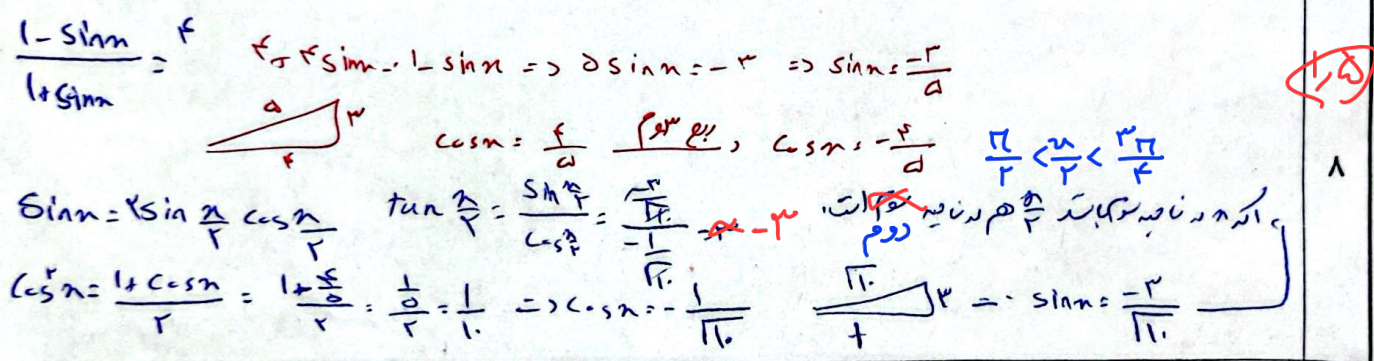 (1 - sinx)/(1 + sinx) = ۴    ۴ + ۴sinx = 1 - sinx => ۵sinx = -۳ => sinx = -۳/۵    ۱٫۵
۵ ۳ ۴    cosx = ۴/۵  ربع سوم  cosx = -۴/۵    π/۲ < x/۲ < ۳π/۴    ۸
sinx = ۲sin x/۲ cos x/۲    tan x/۲ = (sin x/۲)/(cos x/۲) = (-۳/√۱۰)/(-۱/√۱۰) = ۳ -۳    اگر x در ناحیه سوم باشد x/۲ هم در ناحیه سوم است.
دوم
cos²x = (1 + cosx)/۲ = (1 + -۴/۵)/۲ = (۱/۵)/۲ = ۱/۱۰ => cosx = -۱/√۱۰    √۱۰ ۳ ۱ => sinx = -۳/√۱۰